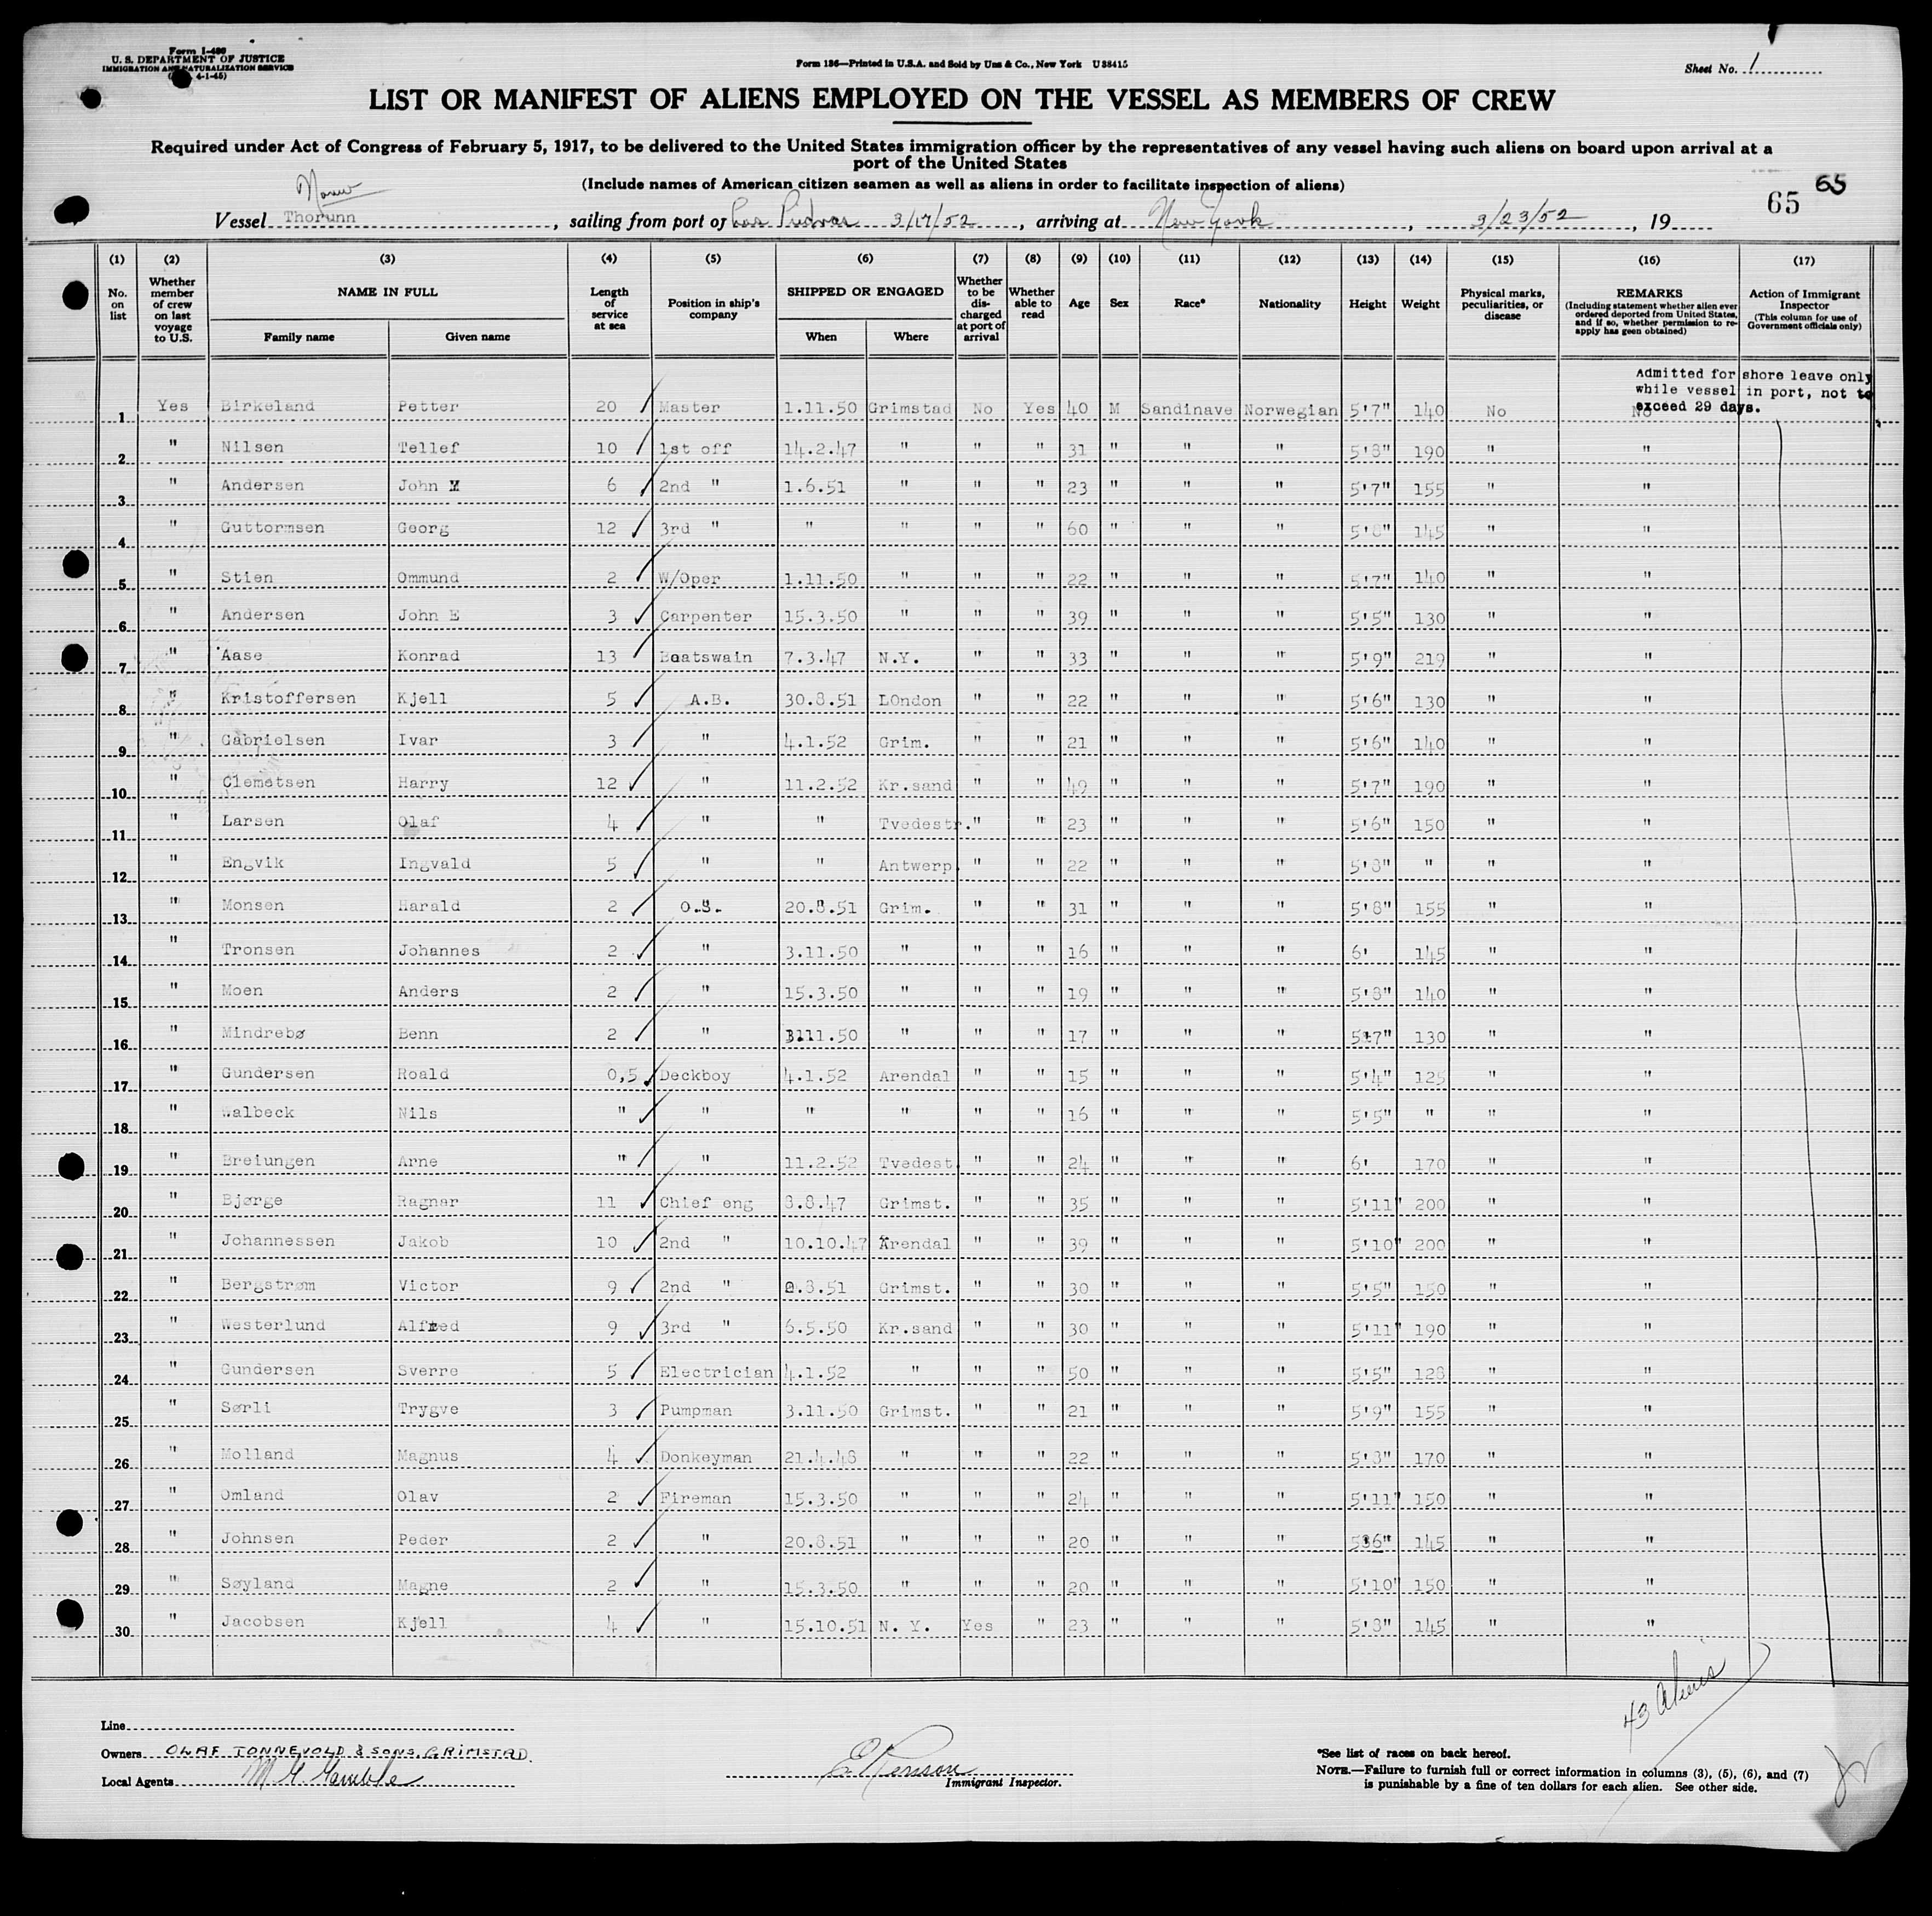 Form I-480
U. S. DEPARTMENT OF JUSTICE
IMMIGRATION AND NATURALIZATION SERVICE
4-1-45)
Form 186—Printed in U.S.A. and Sold by Unz & Co., New York U 38415
Sheet No. 1
LIST OR MANIFEST OF ALIENS EMPLOYED ON THE VESSEL AS MEMBERS OF CREW
Required under Act of Congress of February 5, 1917, to be delivered to the United States immigration officer by the representatives of any vessel having such aliens on board upon arrival at a
port of the United States
(Include names of American citizen seamen as well as aliens in order to facilitate inspection of aliens)
65 65
Vessel Thorunn, sailing from port of 3/17/52, arriving at New York, 3/23/52, 19
(1) (2) (3) (4) (5) (6) (7) (8) (9) (10) (11) (12) (13) (14) (15) (16) (17)
No. on list | Whether member of crew on last voyage to U.S. | NAME IN FULL Family name Given name | Length of service at sea | Position in ship's company | SHIPPED OR ENGAGED When Where | Whether to be discharged at port of arrival | Whether able to read | Age | Sex | Race* | Nationality | Height | Weight | Physical marks, peculiarities, or disease | REMARKS (Including statement whether alien ever ordered deported from United States, and if so, whether permission to re-apply has geen obtained) | Action of Immigrant Inspector (This column for use of Government officials only)
Admitted for shore leave only
while vessel in port, not to
exceed 29 days.
1 Yes Birkeland Petter 20 Master 1.11.50 Grimstad No Yes 40 M Sandinave Norwegian 5'7" 140 No No
2 " Nilsen Tellef 10 1st off 14.2.47 " " " 31 " " " 5'8" 190 " "
3 " Andersen John 6 2nd " 1.6.51 " " " 23 " " " 5'7" 155 " "
4 " Guttormsen Georg 12 3rd " " " " " 60 " " " 5'8" 145 " "
5 " Stien Ommund 2 W/Oper 1.11.50 " " " 22 " " " 5'7" 140 " "
6 " Andersen John E 3 Carpenter 15.3.50 " " " 39 " " " 5'5" 130 " "
7 " Aase Konrad 13 Boatswain 7.3.47 N.Y. " " 33 " " " 5'9" 219 " "
8 " Kristoffersen Kjell 5 A.B. 30.8.51 LOndon " " 22 " " " 5'6" 130 " "
9 " Gabrielsen Ivar 3 " 4.1.52 Grim. " " 21 " " " 5'6" 140 " "
10 " Clemetsen Harry 12 " 11.2.52 Kr.sand " " 49 " " " 5'7" 190 " "
11 " Larsen Olaf 4 " " Tvedestr. " " 23 " " " 5'6" 150 " "
12 " Engvik Ingvald 5 " " Antwerp. " " 22 " " " 5'8" " " "
13 " Monsen Harald 2 O.S. 20.8.51 Grim. " " 31 " " " 5'8" 155 " "
14 " Tronsen Johannes 2 " 3.11.50 " " " 16 " " " 6' 145 " "
15 " Moen Anders 2 " 15.3.50 " " " 19 " " " 5'8" 140 " "
16 " Mindrebø Benn 2 " 3.11.50 " " " 17 " " " 5'7" 130 " "
17 " Gundersen Roald 0,5 Deckboy 4.1.52 Arendal " " 15 " " " 5'4" 125 " "
18 " Walbeck Nils " " " " " " 16 " " " 5'5" " " "
19 " Breiungen Arne " " 11.2.52 Tvedest. " " 24 " " " 6' 170 " "
20 " Bjørge Ragnar 11 Chief eng 8.8.47 Grimst. " " 35 " " " 5'11" 200 " "
21 " Johannessen Jakob 10 2nd " 10.10.47 Arendal " " 39 " " " 5'10" 200 " "
22 " Bergstrøm Victor 9 2nd " .8.51 Grimst. " " 30 " " " 5'5" 150 " "
23 " Westerlund Alfred 9 3rd " 6.5.50 Kr.sand " " 30 " " " 5'11" 190 " "
24 " Gundersen Sverre 5 Electrician 4.1.52 " " " 50 " " " 5'5" 128 " "
25 " Sørli Trygve 3 Pumpman 3.11.50 Grimst. " " 21 " " " 5'9" 155 " "
26 " Molland Magnus 4 Donkeyman 21.4.48 " " " 22 " " " 5'8" 170 " "
27 " Omland Olav 2 Fireman 15.3.50 " " " 24 " " " 5'11" 150 " "
28 " Johnsen Peder 2 " 20.8.51 " " " 20 " " " 5'6" 145 " "
29 " Søyland Magne 2 " 15.3.50 " " " 20 " " " 5'10" 150 " "
30 " Jacobsen Kjell 4 " 15.10.51 N. Y. Yes " 23 " " " 5'8" 145 " "
43 Aliens
Line
Owners OLAF TONNEVOLD & SONS, GRIMSTAD.
Local Agents
Immigrant Inspector.
*See list of races on back hereof.
NOTE.—Failure to furnish full or correct information in columns (3), (5), (6), and (7)
is punishable by a fine of ten dollars for each alien. See other side.